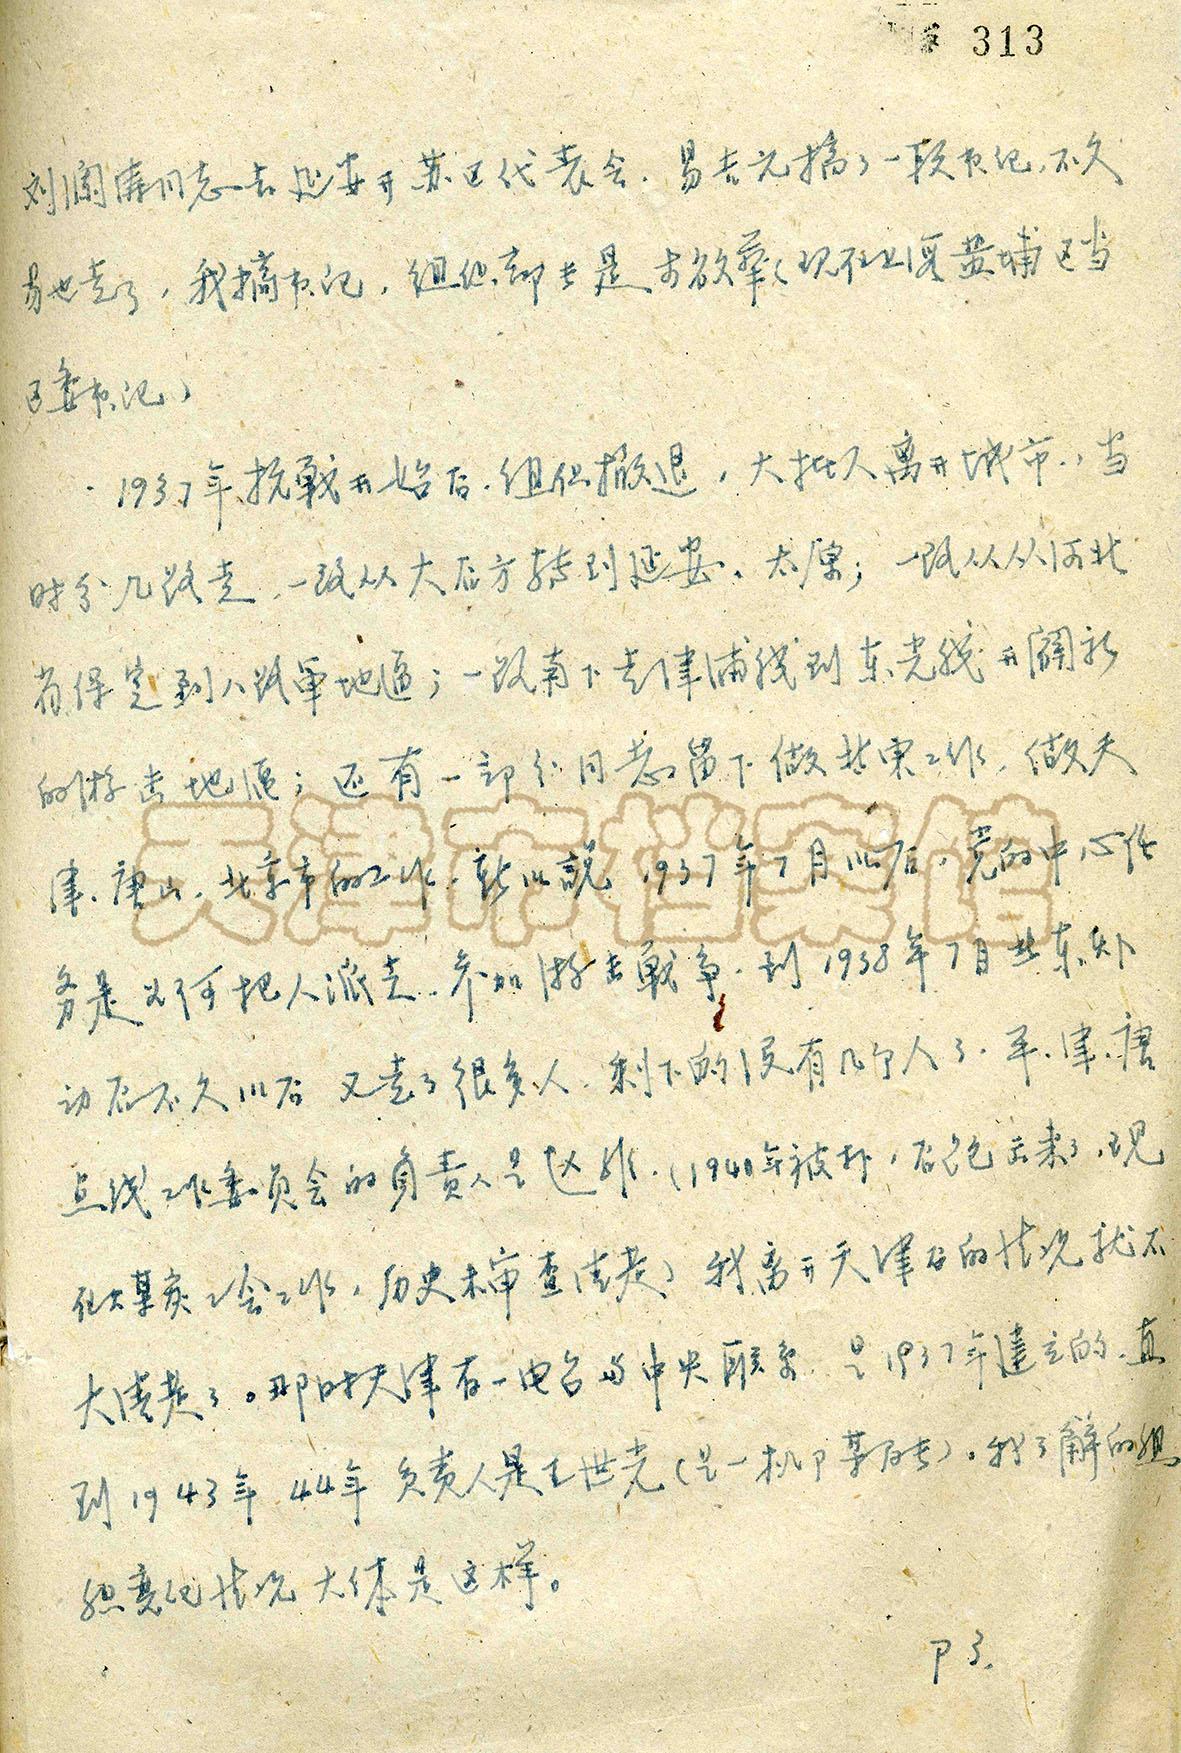 313
刘同志去延安开苏区代表会．易吉光搞了一段书记，不久
易也走了，我搞书记，组织部长是方（现在上海黄埔区当
区委书记）
1937年抗戰开始后．组织撤退，大批人离开城市，当
时分几路走，一路从大后方转到延安、太原；一路从从河北
省保定到八路軍地區；一路南下走津浦线到东光线开闢新
的游击地區；还有一部分同志留下做冀東工作，做天
津、唐山、北京市的工作．所以說1937年7月以后，党的中心任
务是如何把人派走．参加游击戰争．到1938年7月冀东暴
动后不久以后又走了很多人．剩下的没有几个人了．平、津、唐
点线工作委员会的負責人是（1940年被捕，后跑出来了，现
在煤炭工会工作，历史未审查清楚）我离开天津后的情况就不
大清楚了。那时天津有一电台与中央联系 是1937年建立的．直
到1943年44年负责人是王世光（是一机部某局长）。我了解的组
织变化情况大体是这样。
P3.
天津市档案馆